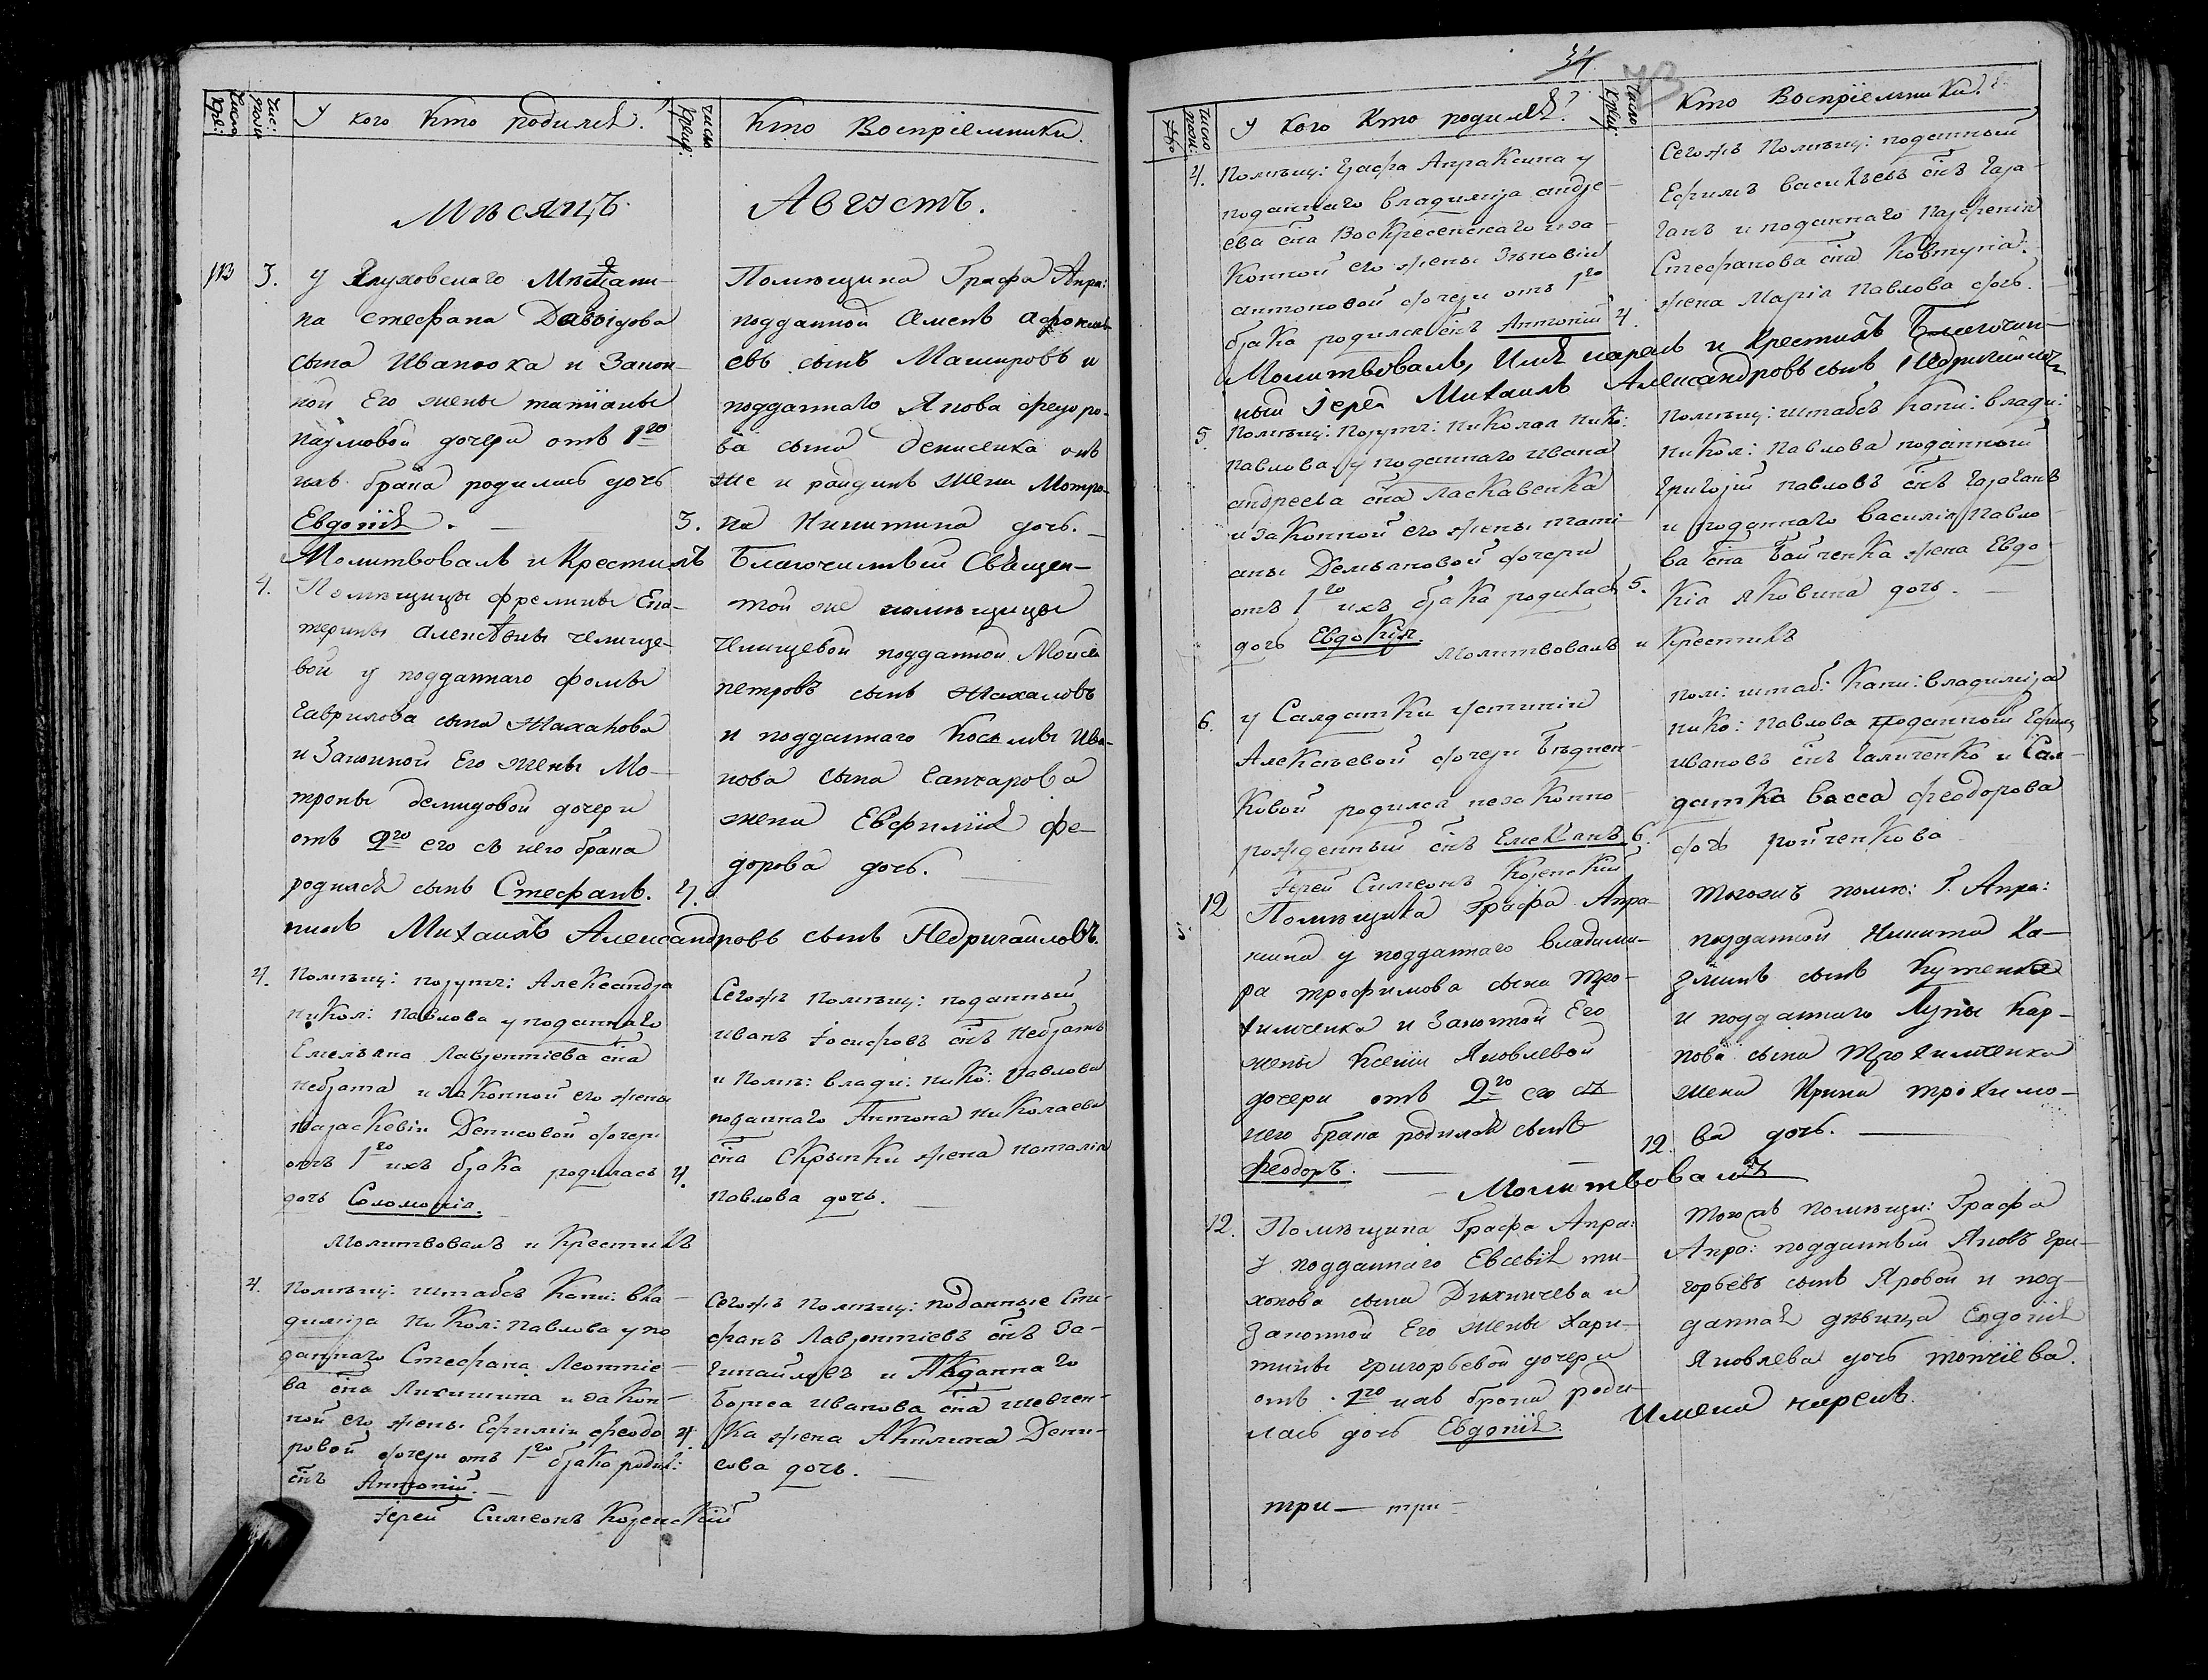 У кого Кто родилсѧ?
Кто Воспріемники.
Мѣсяцъ
Августъ.
113
3. У Глуховскаго Мѣщани-
на Стефана Давыдова
сына Иванюка и Закон-
ной Его жены татіаны
наумовой дочери отъ 1го
ихъ брака родилась дочь
Евдокіѧ.
Помѣщика Графа Апра:
подданной
евъ сынъ и
подданнаго Якова федоро-
ва сына денисенка онъ
же жена Мотро-
3. на Никитина дочь.
Молитвовалъ и Крестилъ Благочинный Священ-
4. Помѣщицы фрелины Ека-
терины алексѣвны челище-
вой у подданнаго фомы
гаврилова сына Жахалова
и Законной Его жены Мо-
троны демидовой дочери
отъ 2го его съ нею брака
родилсѧ сынъ Стефанъ. 4.
той же помѣщицы
Челищевой подданной Моисей
петровъ сынъ Жахаловъ
и подданнаго Косьмы Ива-
нова сына ганчарова
жена Евфиміѧ фе-
дорова дочь.
никъ Михаилъ Александровъ сынъ Недригайловъ.
4. Помѣщ: поруч: Александра
никол: Павлова у поданнаго
Емельяна Лаврентіева сна
небрата и законной его жены
параскевіи Денисовой дочери
отъ 1го ихъ брака родилась 4.
дочь Соломонія.
Сегожъ Помѣщ: поданный
иванъ Іосифовъ снъ Небратъ
и Помѣ: влади: нико: павлова
поданнаго Антона николаева
сна Скрыпки жена наталія
павлова дочь.
Молитвовалъ и Крестилъ
4. Помѣщ: штабсъ Капи: вла-
димира Никол: Павлова у по
даннаго Стефана Леонтіе-
ва сна и закон-
ной его жены Ефиміи феодо 4.
ровой дочери отъ 1го брака родил:
снъ Антоній.
Сегожъ Помѣщ: поданные Сте-
фанъ Лаврентіевъ снъ За-
и Поданнаго
Бориса иванова сна шевчен-
ка жена Акилина Дени-
сова дочь.
Іерей Симеонъ Коренскій
34
73
У кого Кто родилсѧ?
Кто Воспріемники.
4. Помѣщ: Графа Апраксина у
поданнаго владимира андре-
ева сна Воскресенскаго и за-
конной его жены Зѣновіи
антоновой дочери отъ 1го
брака родился снъ Антоній 4.
Сегожъ Помѣщ: поданный
Ефимъ василіевъ снъ гара-
ганъ и поданнаго Парфенія
Стефанова сна Ковтуна
жена Марія Павлова дочь.
Молитвовалъ, Имѧ нарелъ и крестилъ Благочин-
ный Іерей Михаилъ Александровъ сынъ Недригайловъ
5. Помѣщ: Поруч: николая нико:
павлова у поданнаго ивана
андреева сна Ласкавенка
и законной его жены тати-
аны Демьяновой дочери
отъ 1го ихъ брака родилась 5.
дочь Евдокія.
помѣщ: штабсъ капи: влади:
никол: павлова поданный
григорій павловъ снъ гараганъ
и поданнаго василія павло-
ва сна Байченка жена Евдо-
кія яковина дочь.
Молитвовалъ и Крестилъ
6. У Салдатки устиніи
Алексѣевой дочери Бѣднен-
ковой родился незаконно-
рожденный снъ Емеліанъ 6.
пом: штаб: капи: владимира
нико: павлова поданный Ефимъ
ивановъ снъ галиченко и Сал-
датка васса феодорова
дочь
Іерей Симеонъ Коренскій
12 Помѣщика Графа Апра-
ксина у подданнаго владими-
ра трофимова сына тро-
химченка и Законной Его
жены Ксеніи Яковлевой
дочери отъ 2го его съ
нею брака родилсѧ сынъ
феодоръ.
тогожъ помѣ: Г. Апра:
подданной Никита Ка-
зминъ сынъ Кутенка
и подданнаго Лупы кар-
пова сына трохимченка
жена Ирина трохимо-
12. ва дочь.
Молитвовалъ
12. Помѣщика Графа Апра:
у подданнаго Евсевіѧ ти-
хонова сына и
Законной Его жены хари-
тины григорьевой дочери
отъ 1го ихъ брака роди-
лась дочь Евдокіѧ.
тогожъ помѣщи: Графа
Апра: подданный Яковъ гри-
горьевъ сынъ Яровой и под-
даннаѧ дѣвица Евдокіѧ
Яковлева дочь
Имена нарекъ.
три — три —